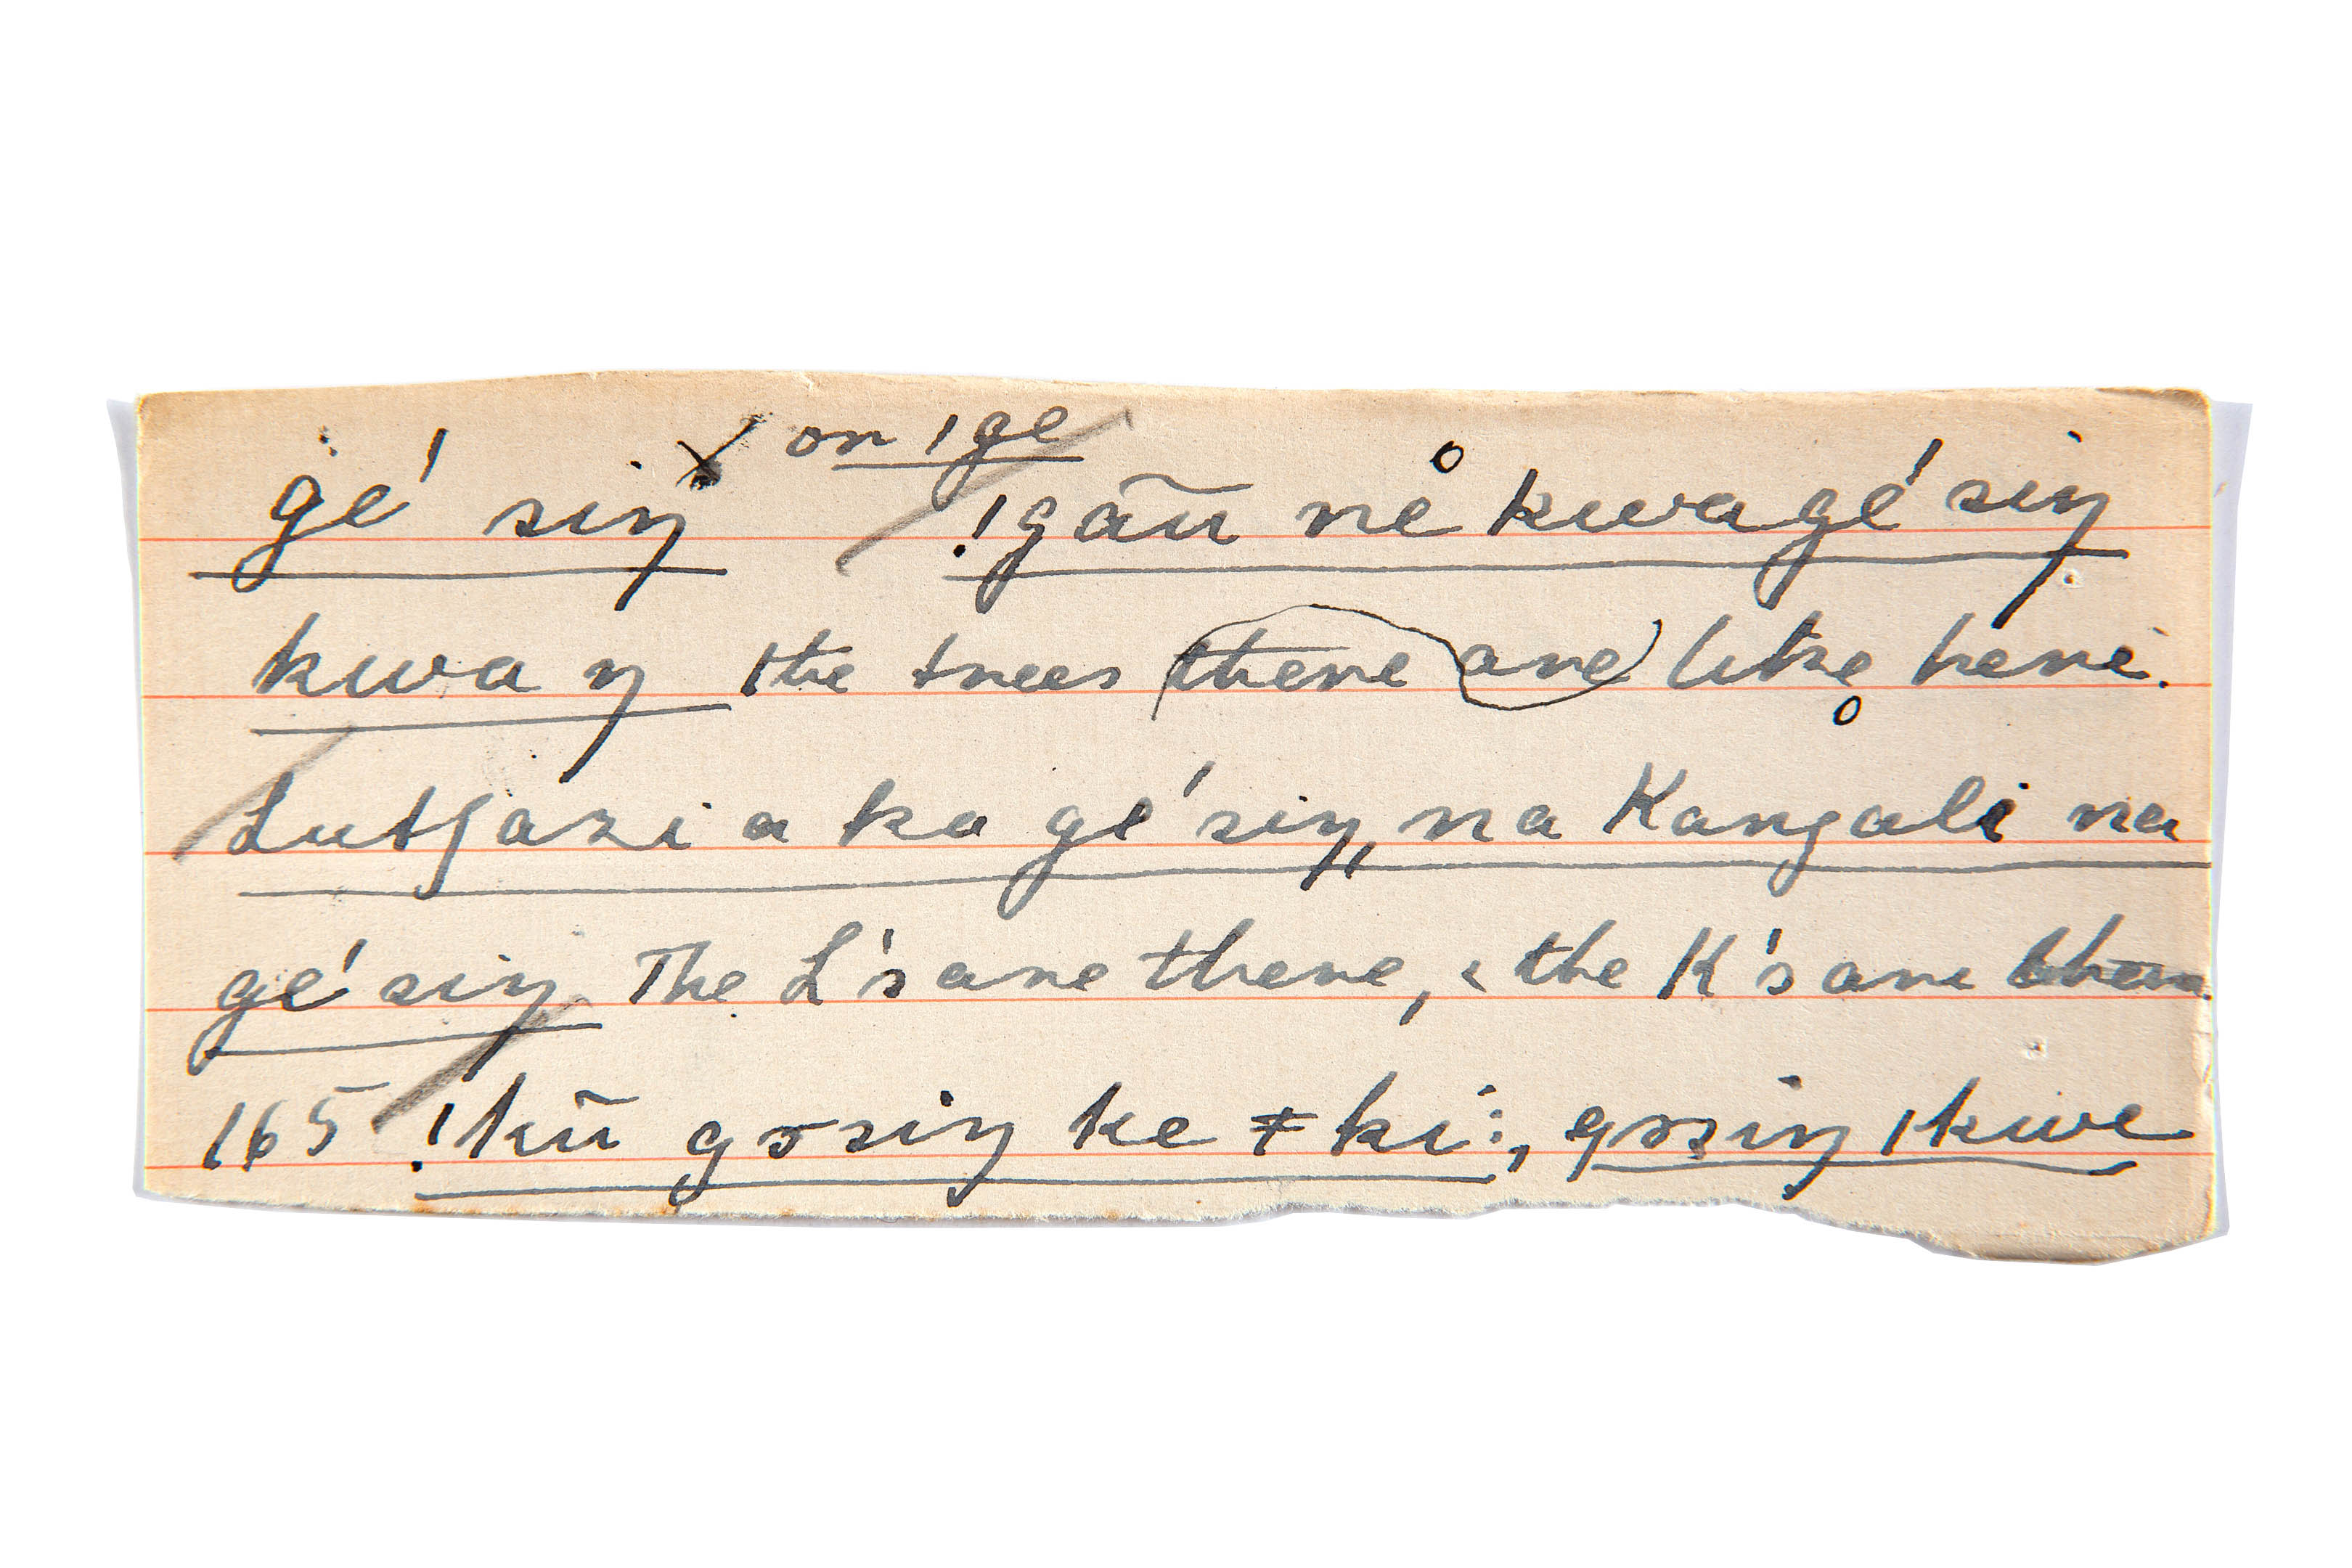 or ǀge
gé' siŋ ǃgãũ ne̊ kwa gé' siŋ
kwa ŋ the trees there are like here.
Lutʃazi a ka gé' siŋ, na Kangali na
gé' siŋ The L's are there, & the K's are there
165 ǃkũ gɔsiŋ ke ǂki:, gɔsiŋ ǀkwe